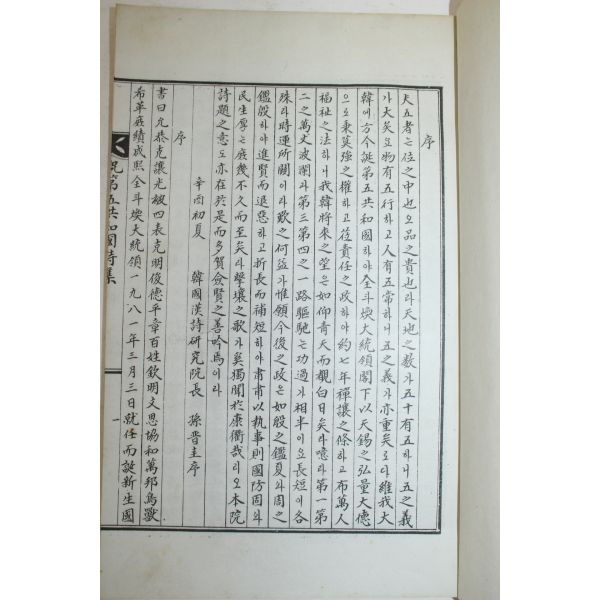 序
夫五者는位之中也오品之貴也라天地之數가五十有五하니五之義
가大矣오物有五行하고人有五常하니五之義가亦重矣로다維我大
韓에方今誕第五共和國하야全斗煥大統領閣下以天錫之弘量大德
으로秉莫强之權하고任責任之政하야約七年禪讓之條하고布萬人
福祉之法하니我韓將來之望은如仰青天而覩白日矣라噫라第一第
二之萬丈波瀾과第三第四之一路驅馳는功過가相半이오長短이各
殊라時運所關이라歎之何益가惟願今後之政은如殷之鑑夏와周之
鑑殷하야進賢而退惡하고折長而補短하야肅肅以執事則國防固와
民生厚는庶幾不久而至矣라擊壤之歌가奚獨聞於康衢哉리오本院
詩題之意도亦在於是而多賀僉賢之善吟焉이라
辛酉初夏 韓國漢詩研究院長 孫晋圭序
序
書曰允恭克讓光被四表克明俊德平章百姓欽明文思協和萬邦鳥獸
希革庶績咸熙全斗煥大統領一九八一年三月三日就任而誕新生國
祝第五共和國詩集
一